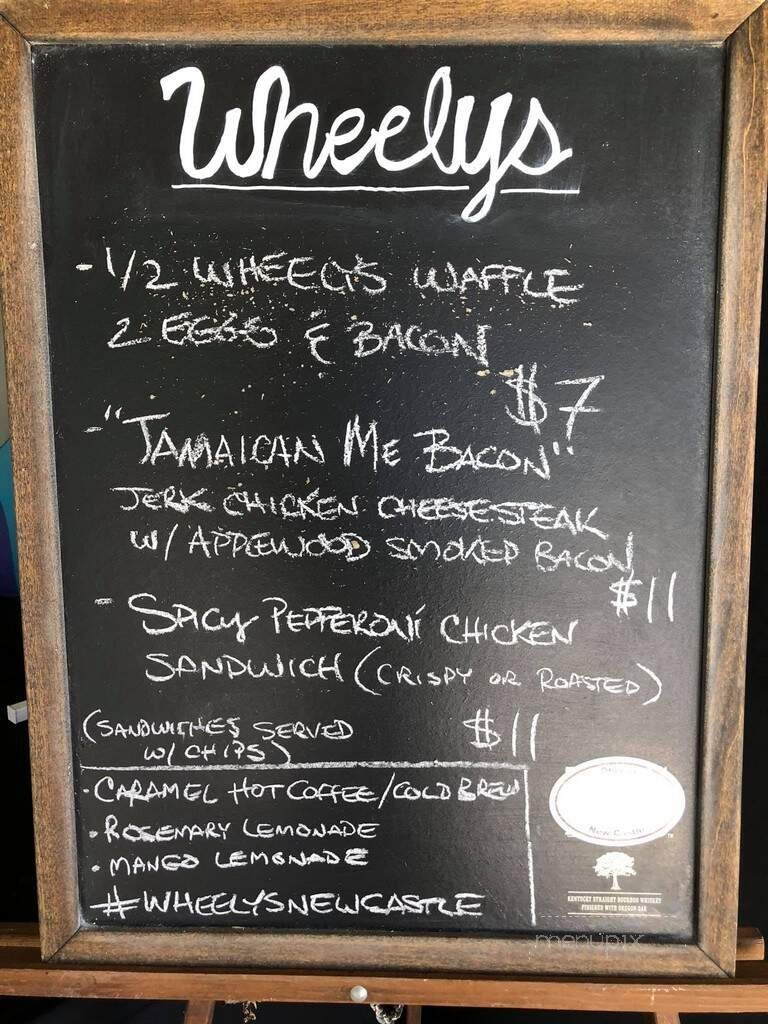 Wheelys
- 1/2 WHEELYS WAFFLE
2 EGGS & BACON
$7
- "JAMAICAN ME BACON"
JERK CHICKEN CHEESESTEAK
W/ APPLEWOOD SMOKED BACON
$11
- SPICY PEPPERONI CHICKEN
SANDWICH (CRISPY OR ROASTED)
(SANDWITHES SERVED
W/ CHIPS)
$11
· CARAMEL HOT COFFEE/COLD BREW
· ROSEMARY LEMONADE
· MANGO LEMONADE
#WHEELYSNEWCASTLE
New Castle
KENTUCKY STRAIGHT BOURBON WHISKEY
FINISHED WITH OREGON OAK
menupix